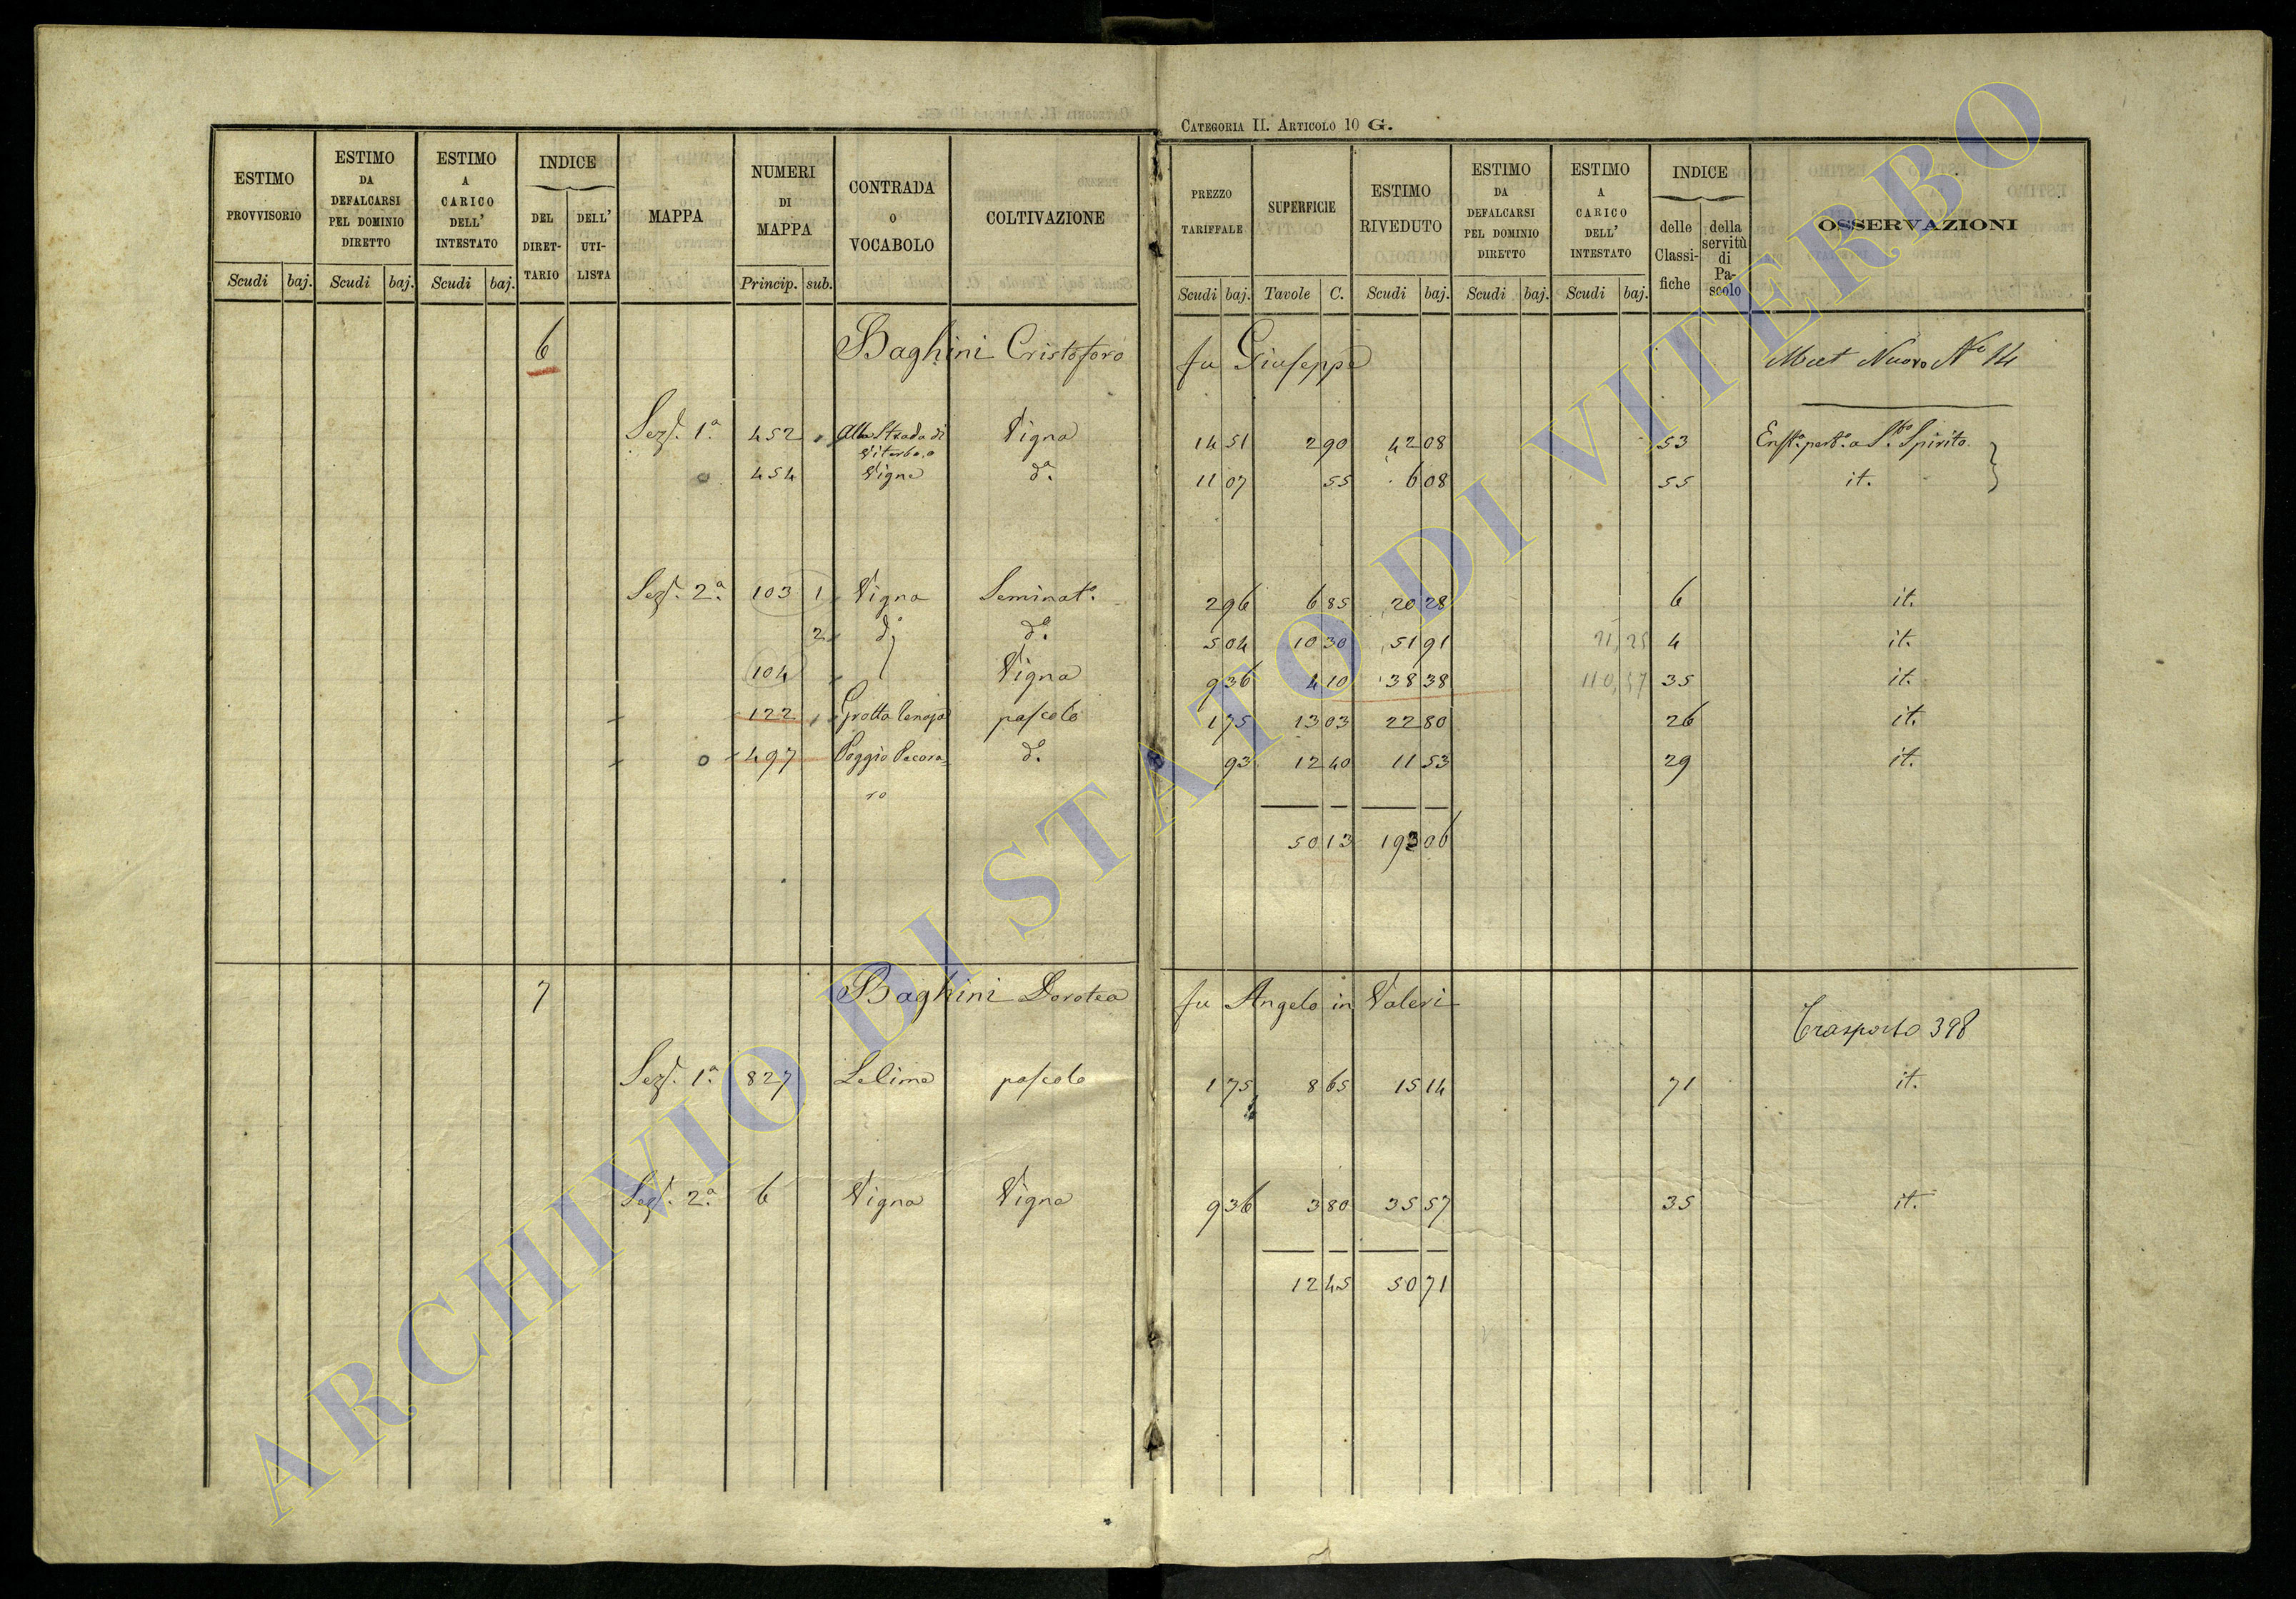 CATEGORIA II. ARTICOLO 10 G.
ESTIMO PROVVISORIO Scudi baj.
ESTIMO DA DEFALCARSI PEL DOMINIO DIRETTO Scudi baj.
ESTIMO A CARICO DELL' INTESTATO Scudi baj.
INDICE DEL DIRET-TARIO DELL' UTI-LISTA
MAPPA
NUMERI DI MAPPA Princip. sub.
CONTRADA O VOCABOLO
COLTIVAZIONE
PREZZO TARIFFALE Scudi baj.
SUPERFICIE Tavole C.
ESTIMO RIVEDUTO Scudi baj.
ESTIMO DA DEFALCARSI PEL DOMINIO DIRETTO Scudi baj.
ESTIMO A CARICO DELL' INTESTATO Scudi baj.
INDICE delle Classi-fiche della servitù di Pa-scolo
OSSERVAZIONI
6 Baghini Cristoforo fu Giuseppe Nuovo Nº 14
Sezˢ. 1ª. 452 Alla Strada di Viterbo o Vigna 14 51 2 90 42 08 53 Sᵗᵒ Spirito
454 Vigne dª. 11 07 55 6 08 55 it.
Sezˢ. 2ª. 103 1 Vigna Seminatº. 2 96 6 85 20 28 6 it.
2 dº dº. 5 04 10 30 51 91 21,25 4 it.
104 Vigna 9 36 4 10 38 38 110,57 35 it.
122 Grotta pascolo 1 75 13 03 22 80 26 it.
497 Poggio Pecora=
ro dº. 93 12 40 11 53 29 it.
50 13 193 06
7 Baghini Dorotea fu Angelo in Valeri
Trasporto 398
Sezˢ. 1ª. 827 Lelime pascolo 1 75 8 65 15 14 71 it.
Sezˢ. 2ª. 6 Vigna Vigna 9 36 3 80 35 57 35 it.
12 45 50 71
ARCHIVIO DI STATO DI VITERBO